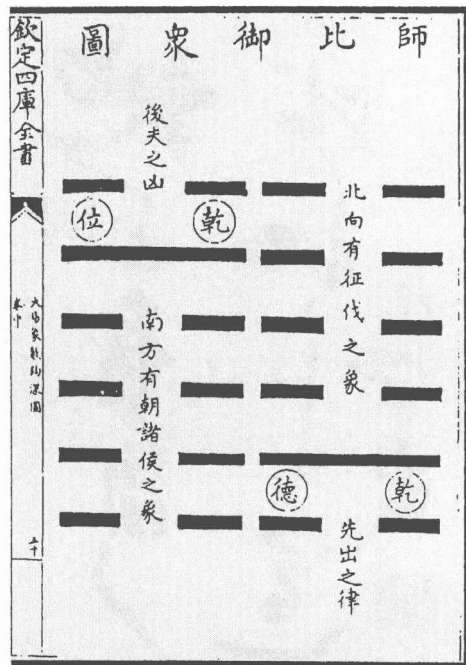 師比御眾圖
北向有征伐之象
乾
德
先出之律
後夫之凶
乾
位
南方有朝諸侯之象
欽定四庫全書
大易象數鉤深圖
卷中
二十